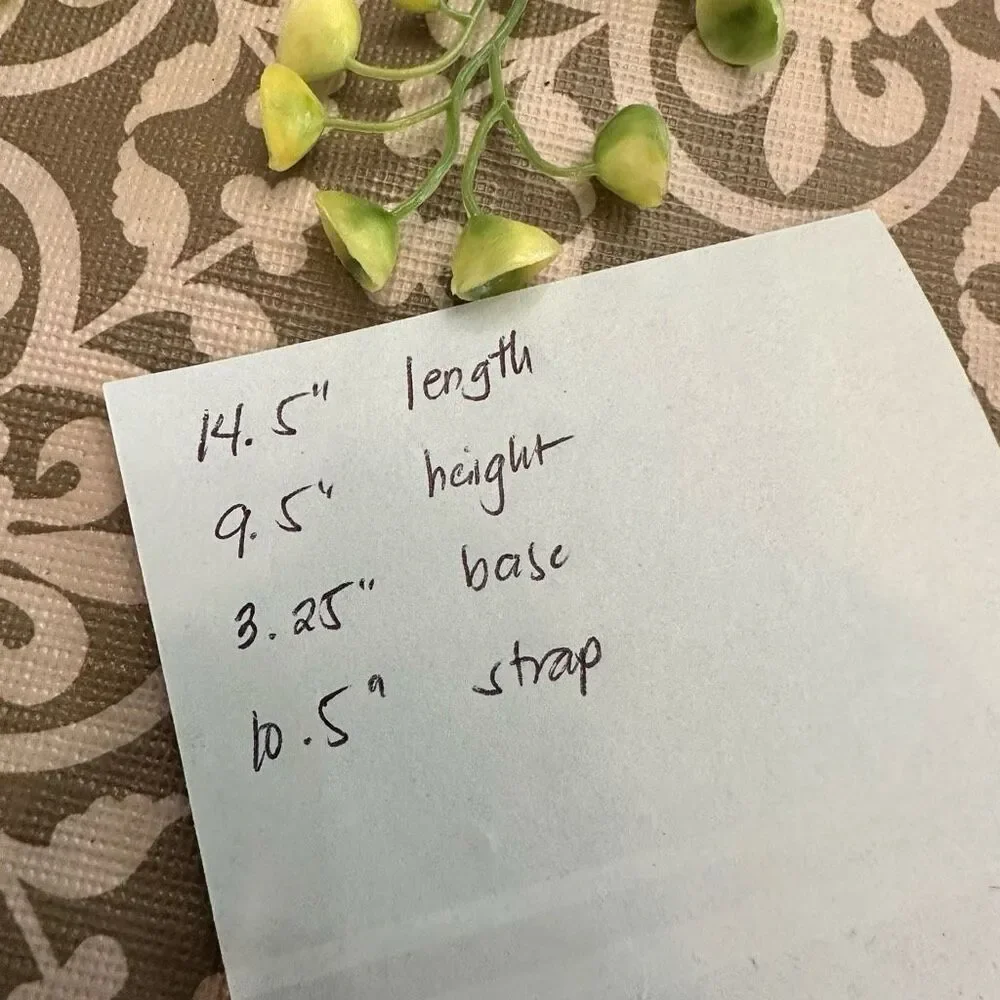 14.5" length
9.5" height
3.25" base
10.5" strap